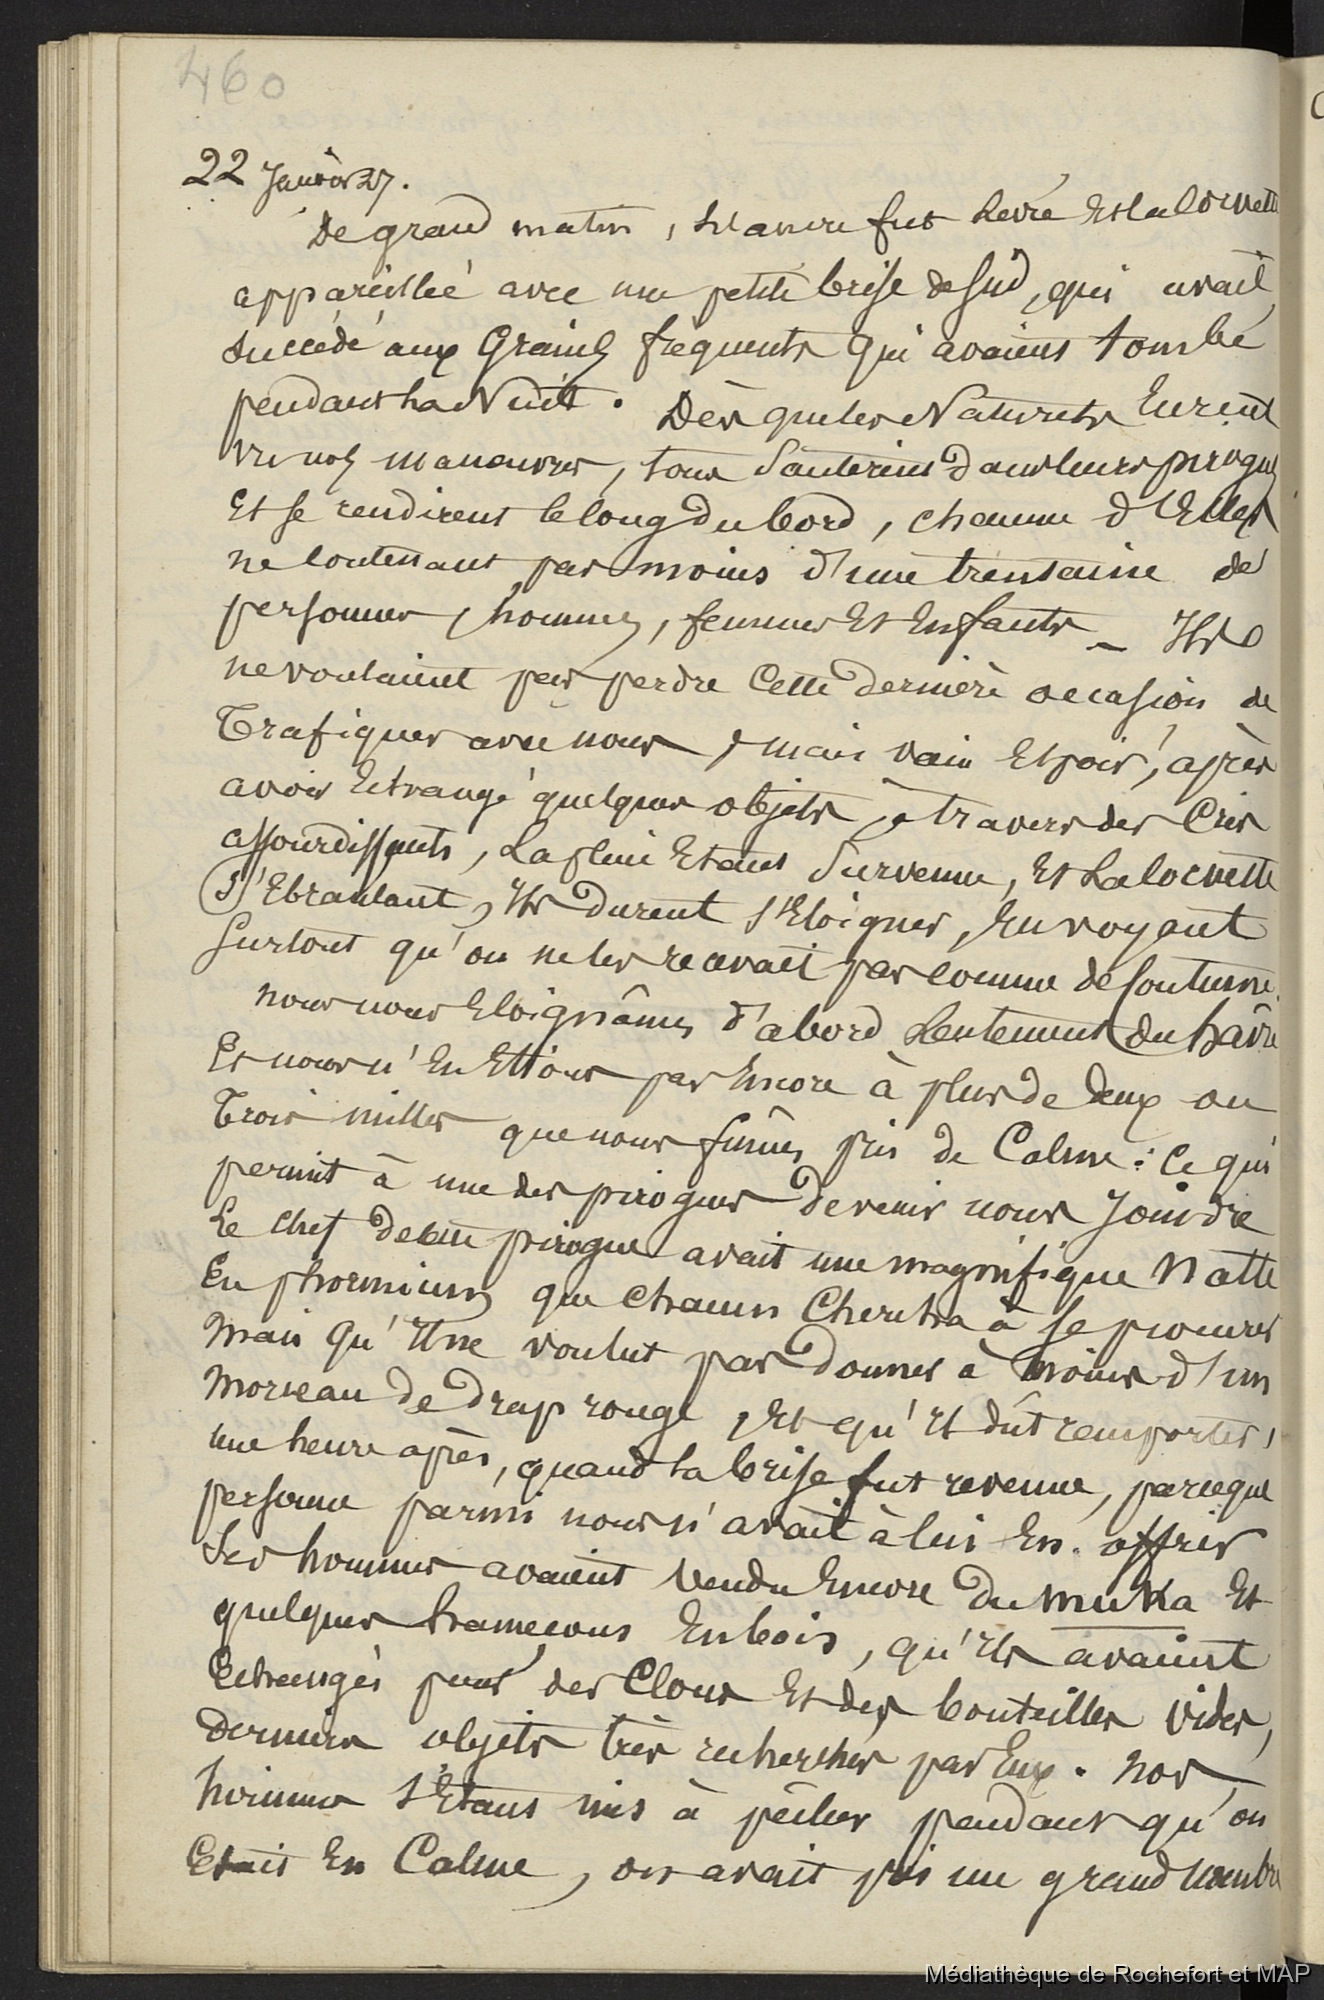 460
22 Janvier 27.
De grand matin, l'ancre fut levée et la corvette
appareillée avec une petite brise de sud, qui avait
succédé aux Grains fréquents qui avaient tombé
pendant la Nuit. Dès que les Naturels Eurent
vu nos manoeuvres, tous Sauterent dans leurs pirogues
Et se rendirent le long du bord, chacune d'Elles
ne contenant pas moins d'une trentaine de
personnes, hommes, femmes Et Enfants _ Ils
ne voulaient pas perdre Cette dernière occasion de
Trafiquer avec nous, mais vain Espoir, après
avoir Echangé quelques objets, à travers des Cris
assourdissants, La pluie Etant Survenue, Et La Corvette
S'Ebranlant, Ils durent s'Eloigner, En voyant
Surtout qu'on ne les recevait pas comme de Coutume.
nous nous Eloignâmes d'abord Lentement du hâvre
Et nous n'En Etions pas Encore à plus de deux ou
Trois milles que nous fûmes pris de Calme: Ce qui
permit à une des pirogues de venir nous Joindre
Le chef de cette pirogue avait une magnifique Natte
En phormium que chacun Chercha à se procurer
Mais qu'Il ne voulut pas donner à moins d'un
Morceau de drap rouge, Et qu'Il dût remporter,
une heure après, quand la brise fut revenue, parceque
personne parmi nous n'avait à lui En offrir
Ses hommes avaient vendu Encore du muka Et
quelques hameçons En bois, qu'Ils avaient
Echangés pour des Clous Et des bouteilles vides,
derniers objets très recherchés par Eux. nos
hommes s'Etant mis à pêcher pendant qu'on
Etait En Calme, on avait pris un grand nombre
Médiathèque de Rochefort et MAP